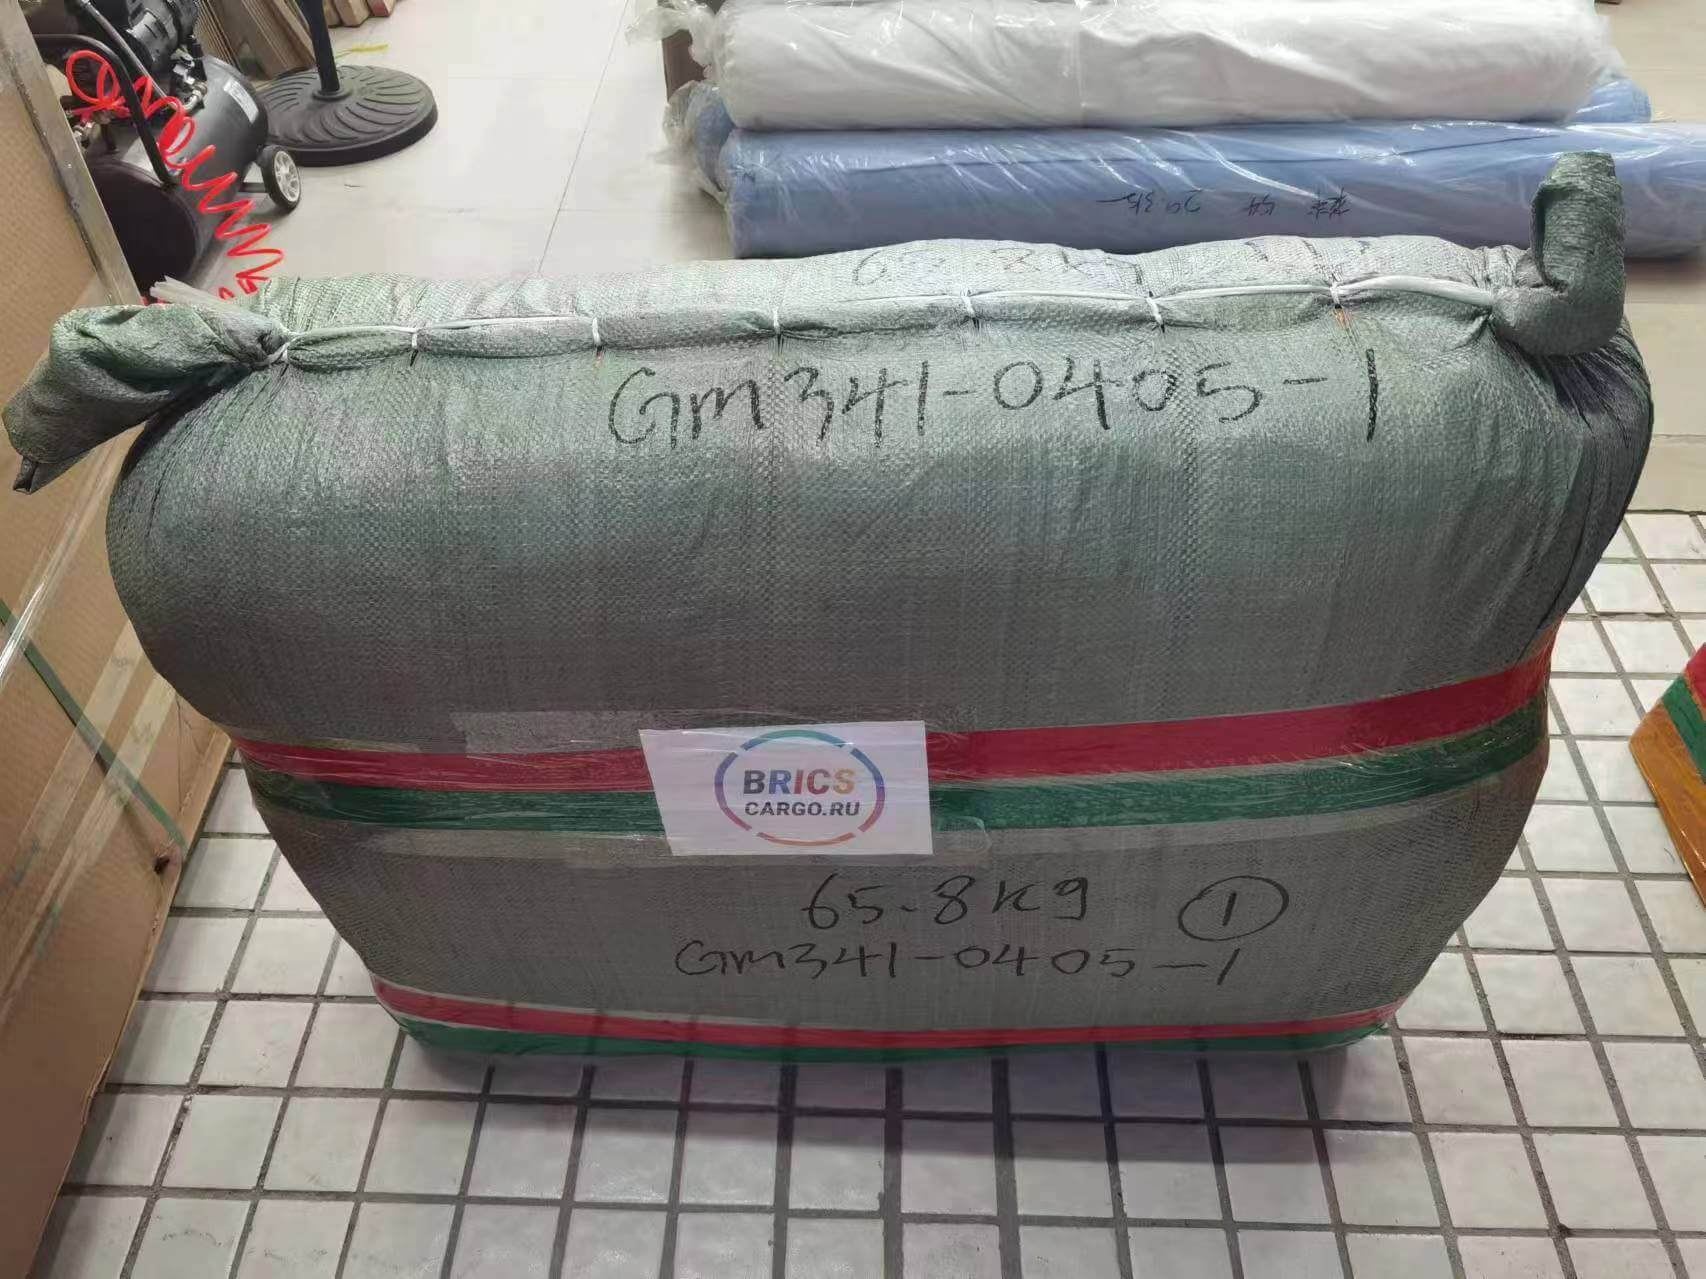 GM341-0405-1
BRICS
CARGO.RU
65.8KG
1
GM341-0405-1